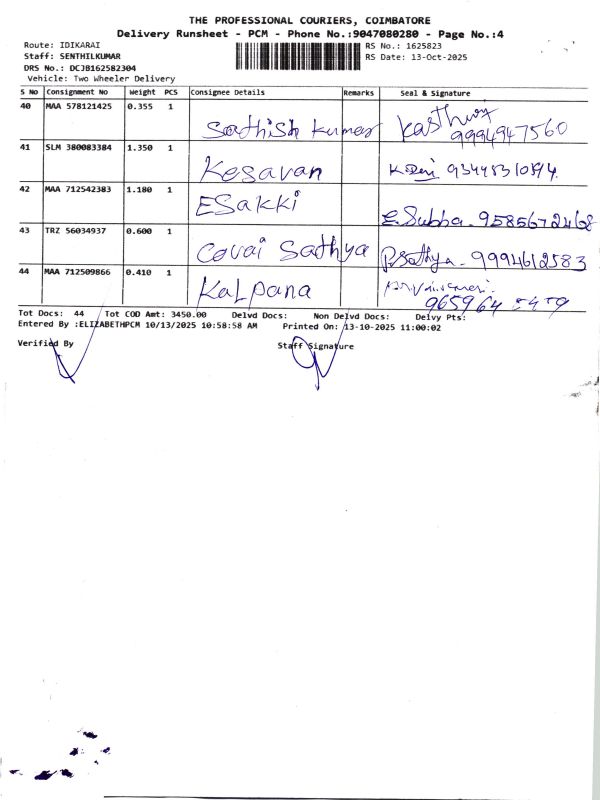 THE PROFESSIONAL COURIERS, COIMBATORE
Delivery Runsheet - PCM - Phone No.:9047080280 - Page No.:4
Route: IDIKARAI
RS No.: 1625823
Staff: SENTHILKUMAR
RS Date: 13-Oct-2025
DRS No.: DCJB162582304
Vehicle: Two Wheeler Delivery
S No Consignment No Weight PCS Consignee Details Remarks Seal & Signature
40 MAA 578121425 0.355 1
Sathish Kumar 9994947560
41 SLM 380083384 1.350 1
Kesavan
42 MAA 712542383 1.180 1
ESakki
E.Subha - 9585672468
43 TRZ 56034937 0.600 1
Covai Sathya P.Sathya - 9994612583
44 MAA 712509866 0.410 1
Kalpana
Tot Docs: 44 Tot COD Amt: 3450.00 Delvd Docs: Non Delvd Docs: Delvy Pts:
Entered By :ELIZABETHPCM 10/13/2025 10:58:58 AM Printed On: 13-10-2025 11:00:02
Verified By Staff Signature